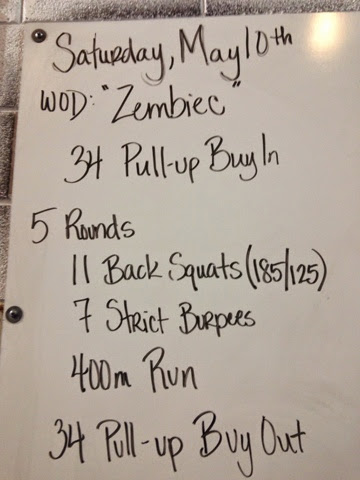 Saturday, May 10th
WOD: "Zembiec"
34 Pull-up Buy In
5 Rounds
11 Back Squats (185/125)
7 Strict Burpees
400m Run
34 Pull-up Buy Out